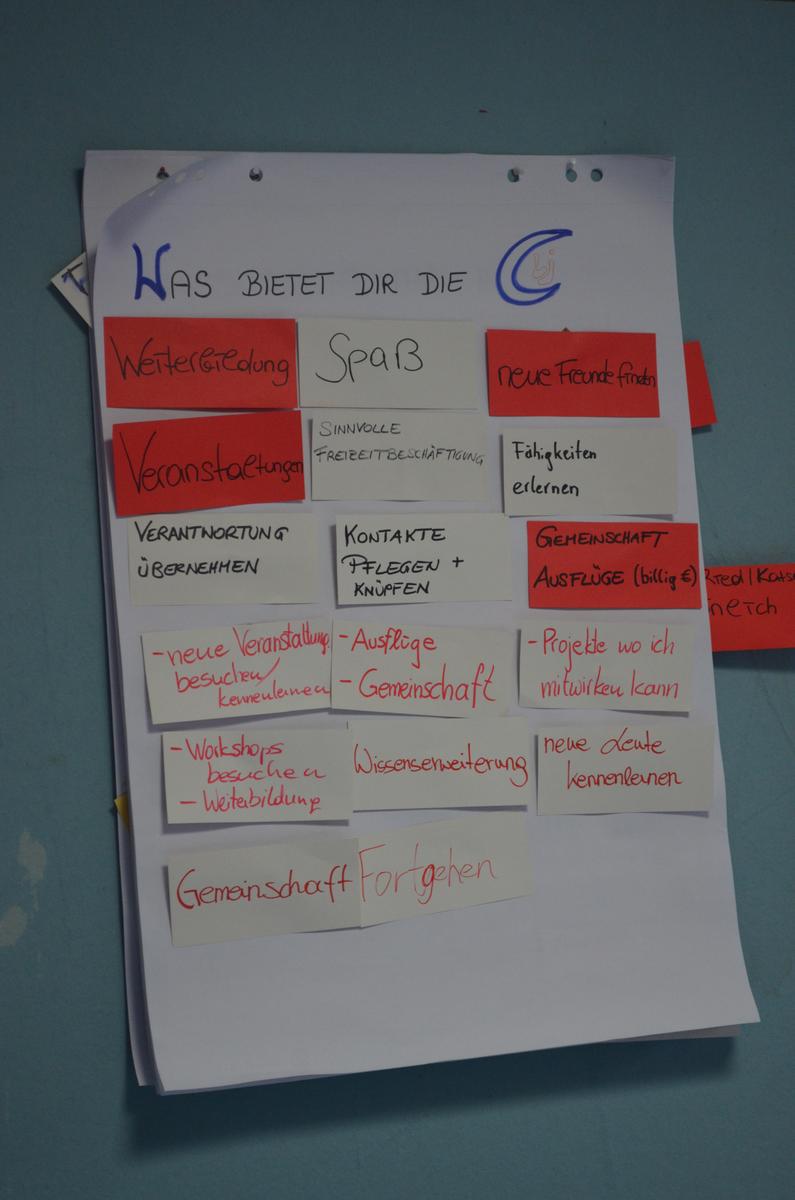 WAS BIETET DIR DIE
bj
Weiterbildung
Spaß
neue Freunde finden
Veranstaltungen
SINNVOLLE
FREIZEITBESCHÄFTIGUNG
Fähigkeiten
erlernen
VERANTWORTUNG
ÜBERNEHMEN
KONTAKTE
PFLEGEN +
KNÜPFEN
GEMEINSCHAFT
AUSFLÜGE (billig €)
- neue Veranstaltung
besuchen/
kennenlernen
- Ausflüge
- Gemeinschaft
- Projekte wo ich
mitwirken kann
- Workshops
besuchen
- Weiterbildung
Wissenserweiterung
neue Leute
kennenlernen
Gemeinschaft
Fortgehen